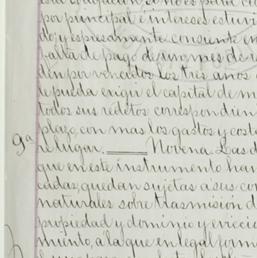 por principal e intereses estuvi
do y espresamente consiente en
falta de pago de un mes de
din por vencidos los tres años
le pueda exigir el capital de m
todos sus reditos correspondien
plazo, con mas los gastos y cost
a lugar. Novena. Las d
9ª
que en este instrumento han
cadas, quedan sujetas a sus co
naturales sobre trasmision d
propiedad y dominio y creci
miento, a la que en legal form